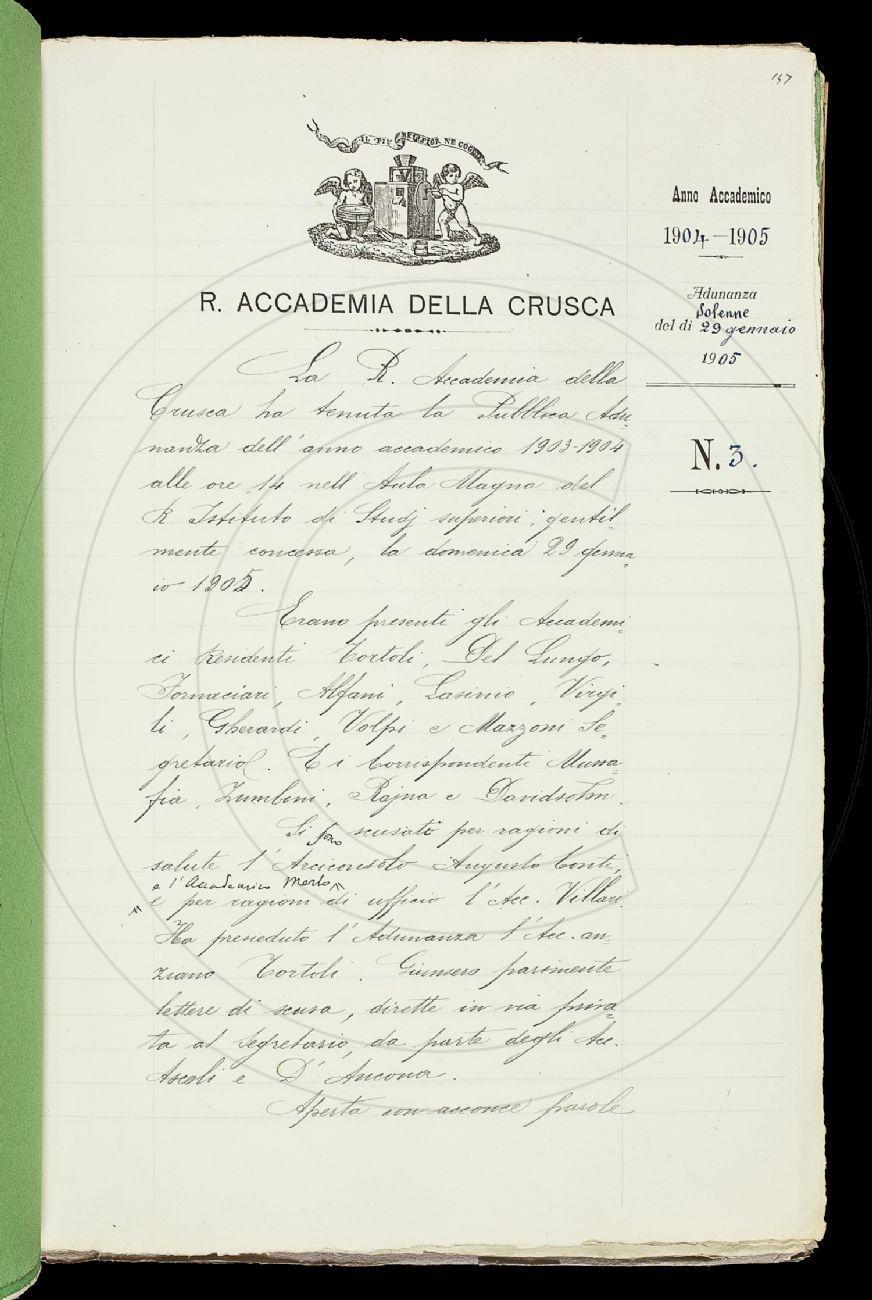 147
IL PIÙ BEL FIOR NE COGLIE
Anno Accademico
1904-1905
Adunanza
Solenne
del dì 29 gennaio
1905
N. 3.
R. ACCADEMIA DELLA CRUSCA
La R. Accademia della
Crusca ha tenuta la Pubblica Adu-
nanza dell'anno accademico 1903-1904
alle ore 14 nell'Aula Magna del
R. Istituto di Studj superiori, gentil-
mente concessa, la domenica 29 genna-
io 1905.
Erano presenti gli Accademi-
ci Residenti Tortoli, Del Lungo,
Fornaciari, Alfani, Lasinio, Virgi-
li, Gherardi, Volpi e Mazzoni Se-
gretario. E i Corrispondenti Mussa-
fia, Zumbini, Rajna e Davidsohn.
Si sono scusati per ragioni di
salute l'Arciconsolo Augusto Conti,
e l'Accademico Merlo
e per ragioni di ufficio l'Acc. Villari.
Ha preseduto l'Adunanza l'Acc. an-
ziano Tortoli. Giunsero parimente
lettere di scusa, dirette in via priva-
ta al Segretario, da parte degli Acc.
Ascoli e D'Ancona.
Aperta con acconce parole